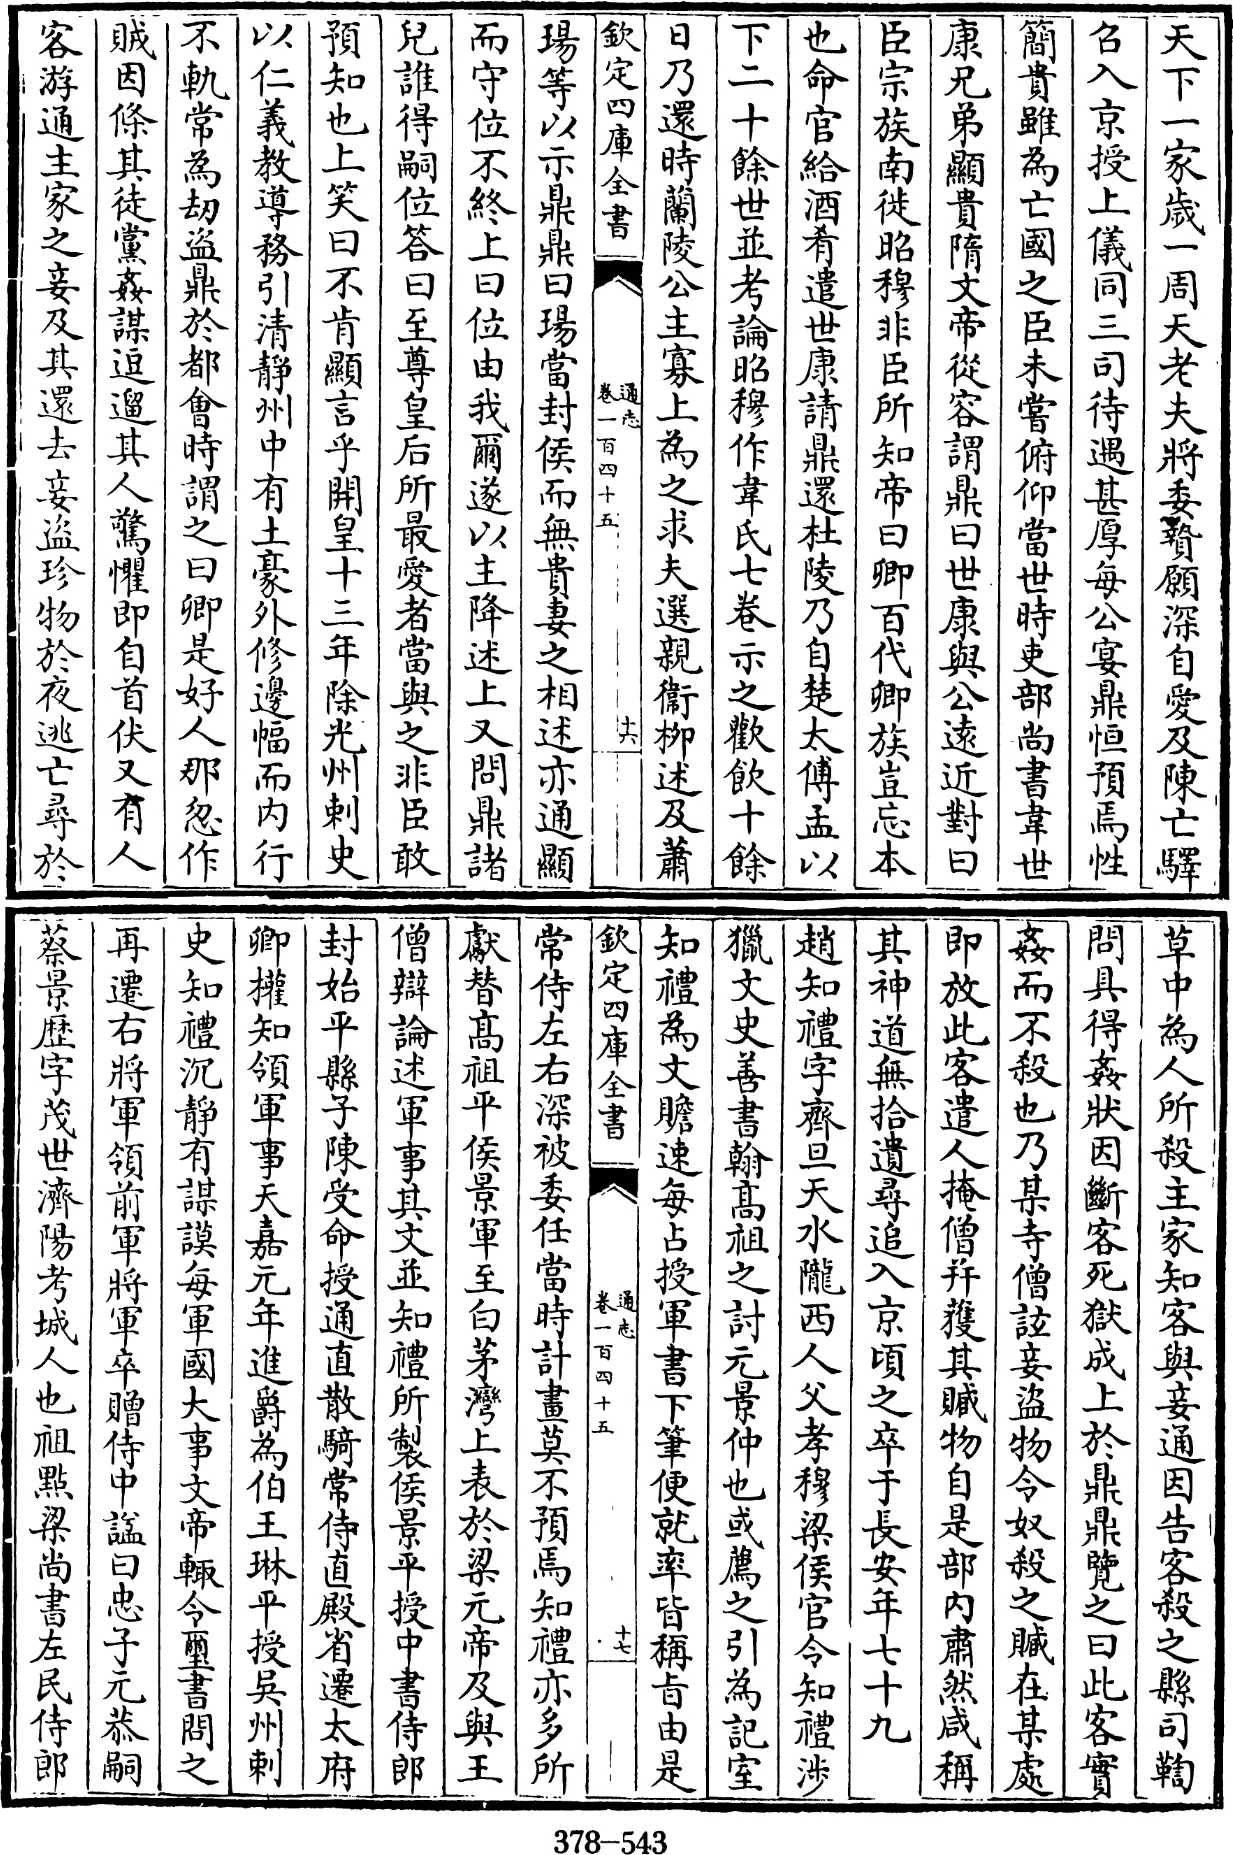 天下一家歳一周天老夫將委贄願深自愛及陳亡驛
召入京授上儀同三司待遇甚厚每公宴鼎恒預焉性
簡貴雖為亡國之臣未嘗俯仰當世時吏部尚書韋世
康兄弟顯貴隋文帝從容謂鼎曰世康與公遠近對曰
臣宗族南徙昭穆非臣所知帝曰卿百代卿族豈忘本
也命官給酒肴遣世康請鼎還杜陵乃自楚太傅孟以
下二十餘世並考論昭穆作韋氏七卷示之歡飲十餘
日乃還時蘭陵公主寡上為之求夫選親衞柳述及蕭
欽定四庫全書
通志
卷一百四十五
十六
瑒等以示鼎鼎曰瑒當封侯而無貴妻之相述亦通顯
而守位不終上曰位由我爾遂以主降述上又問鼎諸
兒誰得嗣位答曰至尊皇后所最愛者當與之非臣敢
預知也上笑曰不肯顯言乎開皇十三年除光州刺史
以仁義教導務引清靜州中有土豪外修邊幅而内行
不軌常為劫盜鼎於都會時謂之曰卿是好人那忽作
賊因條其徒黨姦謀逗遛其人驚懼即自首伏又有人
客游通主家之妾及其還去妾盜珍物於夜逃亡尋於
草中為人所殺主家知客與妾通因告客殺之縣司鞫
問具得姦狀因斷客死獄成上於鼎鼎覽之曰此客實
姦而不殺也乃某寺僧詃妾盜物令奴殺之贓在某處
即放此客遣人掩僧并獲其贓物自是部内肅然咸稱
其神道無拾遺尋追入京頃之卒于長安年七十九
趙知禮字齊旦天水隴西人父孝穆梁侯官令知禮涉
獵文史善書翰髙祖之討元景仲也或薦之引為記室
知禮為文贍速每占授軍書下筆便就率皆稱旨由是
欽定四庫全書
通志
卷一百四十五
十七
常侍左右深被委任當時計畫莫不預焉知禮亦多所
獻替髙祖平侯景軍至白茅灣上表於梁元帝及與王
僧辯論述軍事其文並知禮所製侯景平授中書侍郎
封始平縣子陳受命授通直散騎常侍直殿省遷太府
卿權知領軍事天嘉元年進爵為伯王琳平授吳州刺
史知禮沉靜有謀謨每軍國大事文帝輒令璽書問之
再遷右將軍領前軍將軍卒贈侍中諡曰忠子元恭嗣
蔡景歴字茂世濟陽考城人也祖點梁尚書左民侍郎
378-543